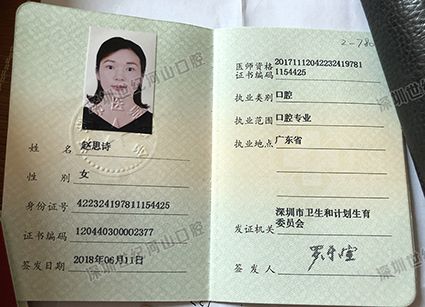 姓 名 赵思诗
性 别 女
身份证号 422324197811154425
证书编码 120440300002377
签发日期 2018年06月11日
2-780
医师资格 20171112042232419781
证书编码 1154425
执业类别 口腔
执业范围 口腔专业
执业地点 广东省
发证机关 深圳市卫生和计划生育
委员会
签 发 人
深圳世纪河山口腔